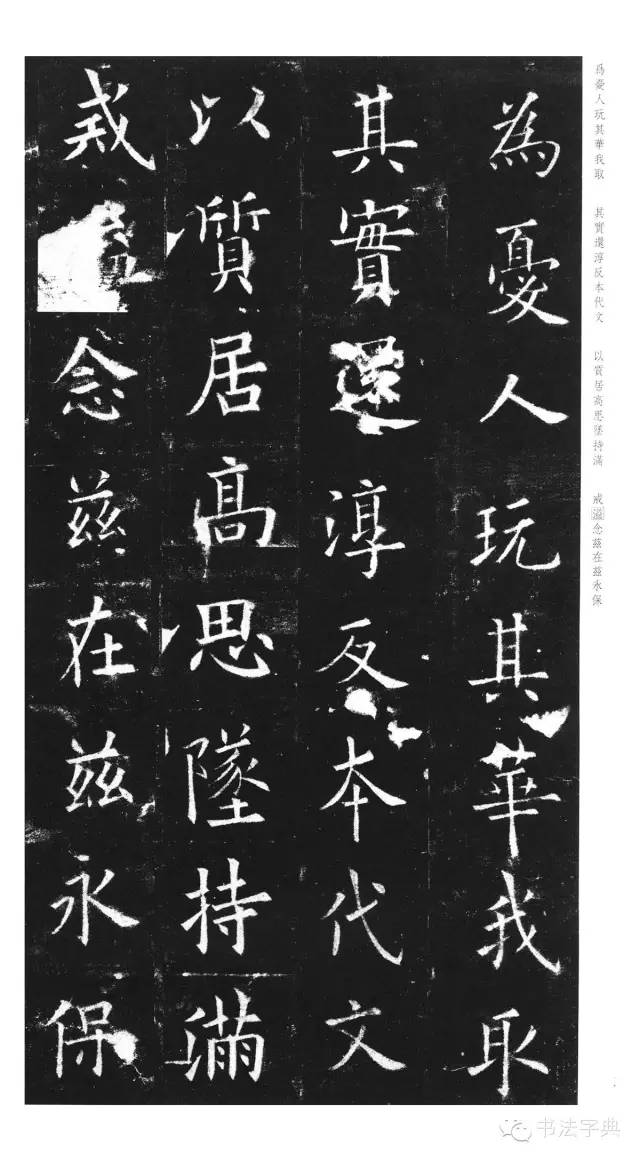 為憂人玩其華我取
其實還淳反本代文
以質居高思墜持滿
戒溢念茲在茲永保
為憂人玩其華我取 其實還淳反本代文 以質居高思墜持滿 戒溢念茲在茲永保
书法字典